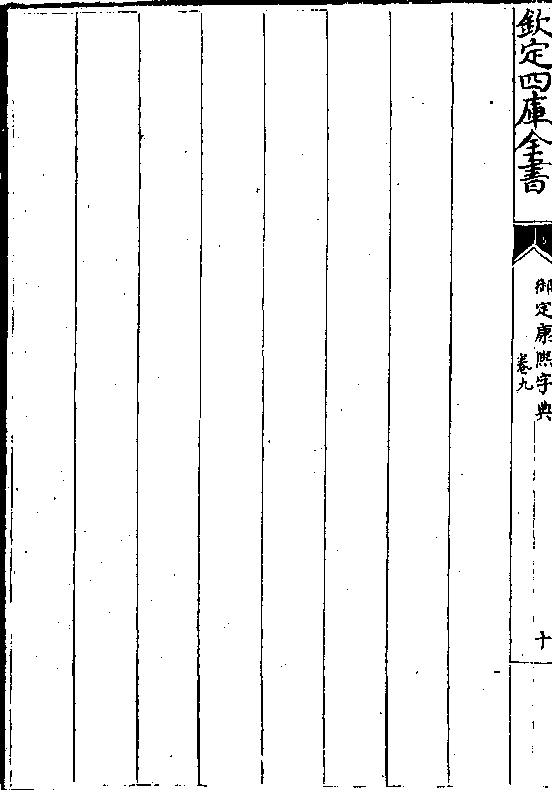 欽定四庫全書
御定康熙字典
卷九
十